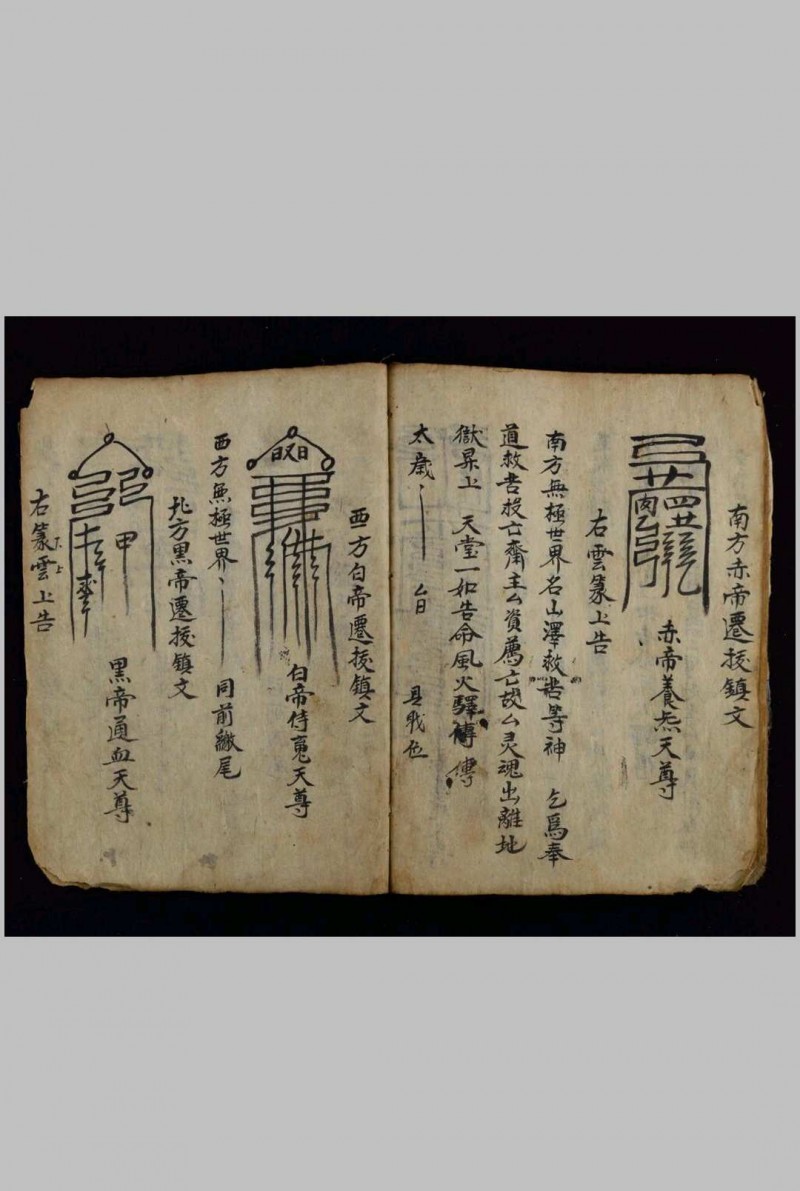 南方赤帝遷拔鎮文
赤帝養炁天尊
右雲篆上告
南方無極世界名山澤敕苦等神 乞爲奉
道救苦拔亡齋主厶資薦亡故厶灵魂出離地
獄昇上 天堂一如告命風火驛傳
太歲 厶日 具職位
西方白帝遷拔鎮文
白帝侍魂天尊
西方無極世界 同前繳尾
北方黑帝遷拔鎮文
黑帝通血天尊
右篆雲上告